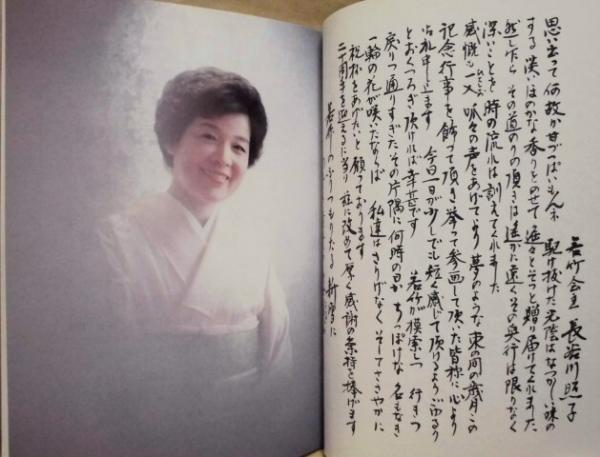 若竹会主 長谷川照子
思い出って何故か甘ずっぱいもんネ 駆け抜けた光陰はなつかしい味の
する淡いほのかな香りとのせて 遥々とそっと贈り届けてくれました
然したら その道のりの頂きは遥かに遠く その奥行は限りなく
深いことを 時の流れは訓えてくれました
感慨も一入 呱々の声をあげてより 夢のような束の間の歳月 この
記念行事を飾って頂き 挙って参画して頂いた皆様に心より
御礼申し上ます 今日一日が少しでも短く感じて頂けるよう ごゆるり
とおくつろぎ頂ければ幸甚です 若竹が模索しつ 行きつ
戻りつ通りすぎたその片隅に何時の日か ちっぽけな名もなき
一輪の花が咲いたならば 私達はさりげなく そしてささやかに
祝杯をあげたいと願っております
二十周年を迎えるに当り 茲に改めて厚く感謝の気持を捧げます
若竹のふりつもりたる新雪に